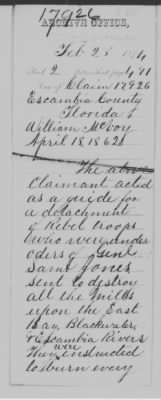 17926
ARCHIVE OFFICE,
Feb 28
2
Claim 17926
Escambia County
Florida
William McVoy
April 18, 1862
The above
Claimant acted
as a guide for
a detachment
of Rebel troops
who were under
oders of Genl
Saml Jones
sent to destroy
all the Mills
upon the East
Bay, Blackwater
& Escambia Rivers
They were instructed
to burn every